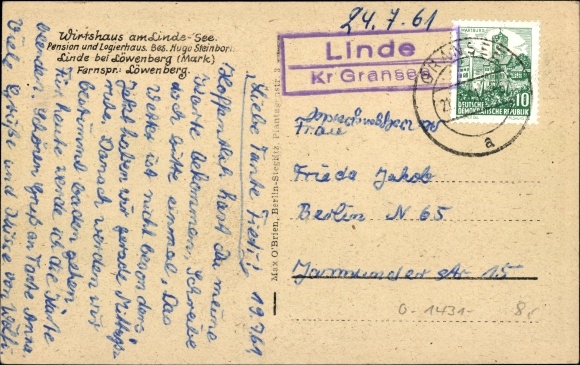 Wirtshaus am Linde-See.
Pension und Logierhaus. Bes. Hugo Steinborn
Linde bei Löwenberg (Mark)
Fernspr.: Löwenberg.
24.7.61
Linde
Kr Gransee
GRANSEE
a
WARTBURG
10
DEUTSCHE
DEMOKRATISCHE REPUBLIK
Frau
Frieda Jakob
Berlin N 65
Jarmunder Str 15
0-1431-
8,-
Max O'Brien, Berlin-Steglitz,
19.7.61
Liebe Tante Friedl!
Hoffentlich hast du meine
Karte bekommen, Schreibe
doch bitte einmal, Das
Wetter ist nicht besonders
Jetzt haben wir gerade Mittags
ruhe. Danach werden wir
bestimmt baden gehen
Für heute werde ich die Karte
beenden. Schönen Gruß an Tante Anna.
Viele Grüße und Küsse von